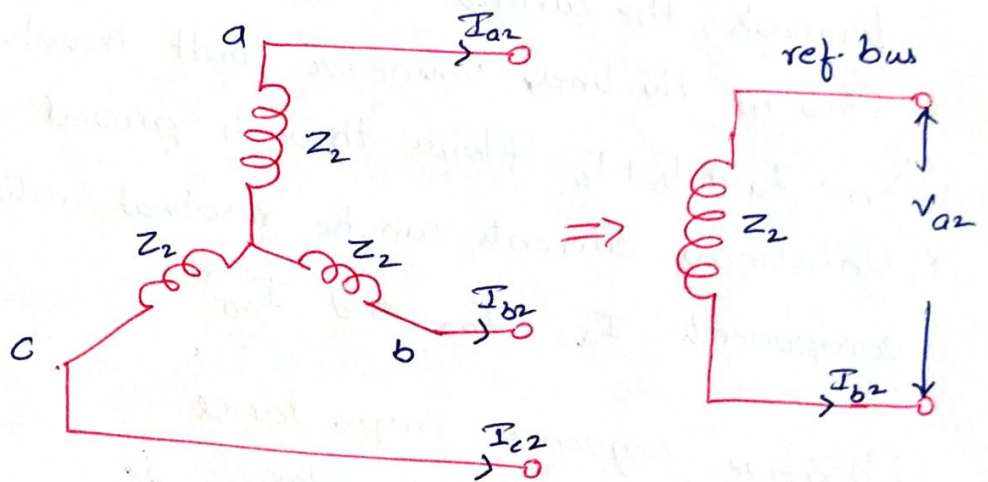 a
I_a2
Z_2
Z_2
Z_2
c
b
I_b2
I_c2
⇒
ref. bus
Z_2
V_a2
I_b2